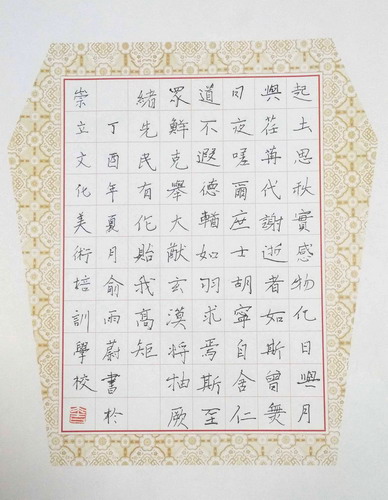 起土思秋實感物化日與月
與荏苒代謝逝者如斯曾無
日夜嗟爾庶士胡寧自舍仁
道不遐德輶如羽求焉斯至
眾鮮克舉大猷玄漠將抽厥
緒先民有作貽我高矩
丁酉年夏月俞雨蔚書於
崇立文化美術培訓學校